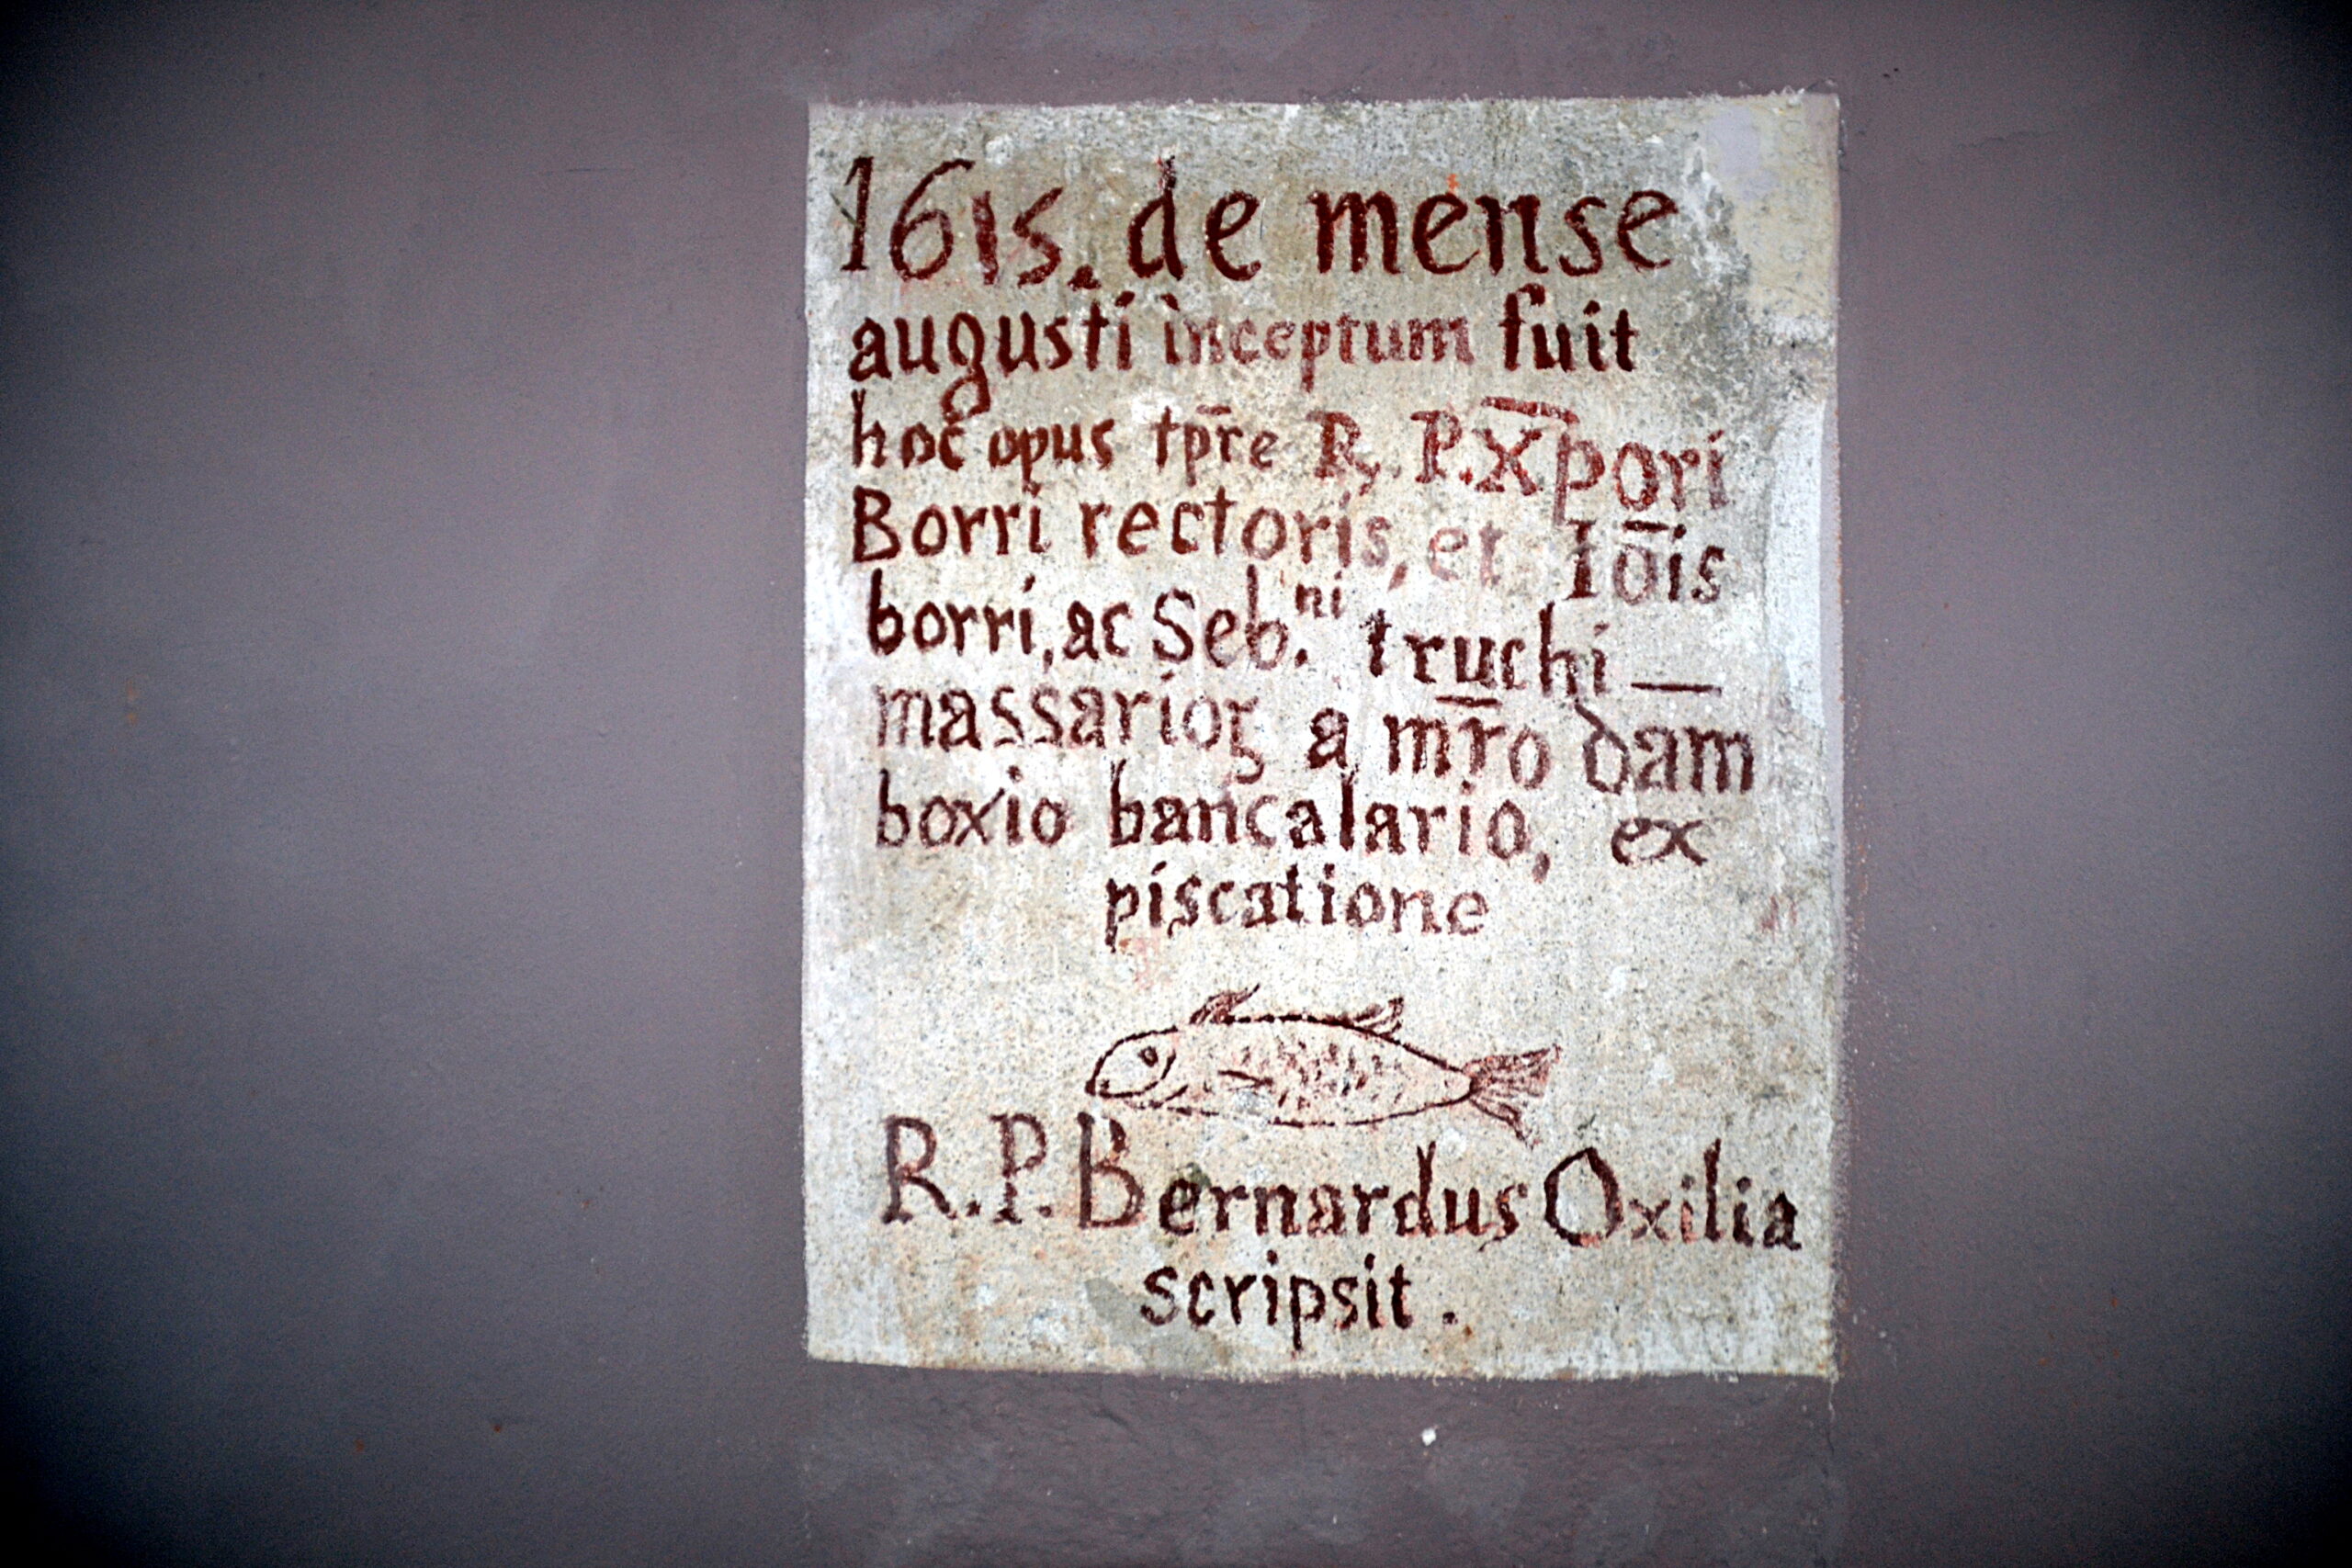 1615. de mense
augusti inceptum fuit
hoc opus tp̄re R. P. Xp̄ori
Borri rectoris, et Iōis
borri, ac Seb.ⁿⁱ truchi —
massarioꝝ a mr̄o dam
boxio bancalario, ex
piscatione
R.P. Bernardus Oxilia
scripsit.